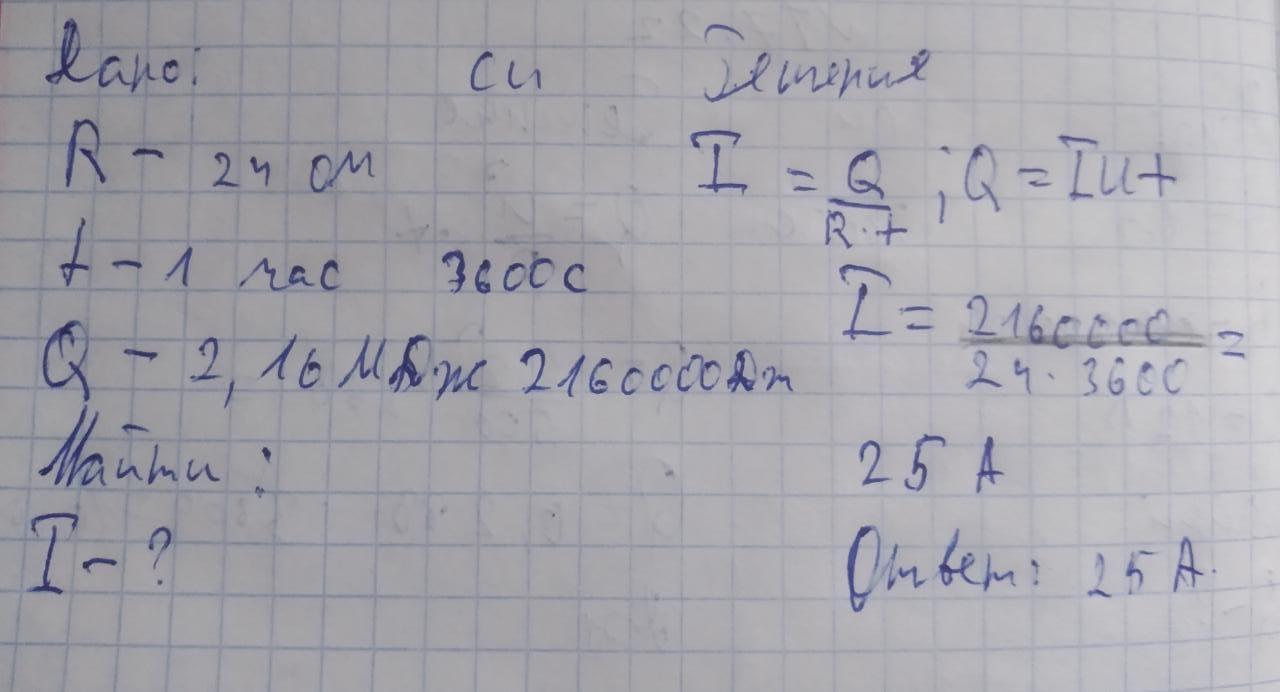 Дано: СИ Решение
R - 24 ом I = Q/R·t ; Q = IUt
t - 1 час 3600с I = 2160000/24·3600 =
Q - 2,16 МДж 2160000Дж
Найти: 25 А
I - ? Ответ: 25 А.